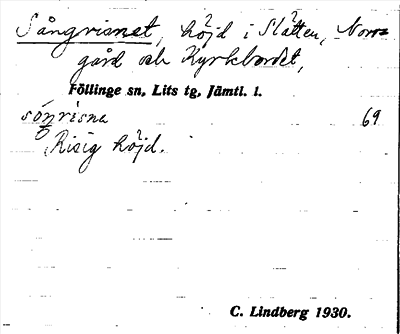 Sångrisnet, höjd i Slåtten, Norr-
gård och Kyrkbordet,
Föllinge sn, Lits tg, Jämtl. l.
söŋrisna 69
Risig höjd.
C. Lindberg 1930.